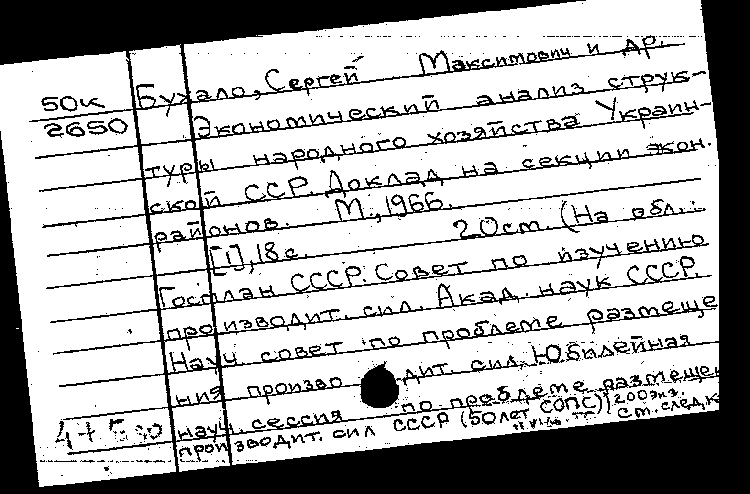 50к Бухало, Сергей Максимович и др.
2650 Экономический анализ струк-
туры народного хозяйства Украин-
ской ССР. Доклад на секции экон.
районов. М., 1966.
[1], 18 с. 20 ст. (На обл.:
Госплан СССР. Совет по изучению
производит. сил. Акад. наук СССР.
Науч. совет по проблеме размеще
ния произво дит. сил. Юбилейная
науч. сессия по проблеме размещен
производит. сил СССР (50 лет СОПС)) 200 экз.
см. след. к